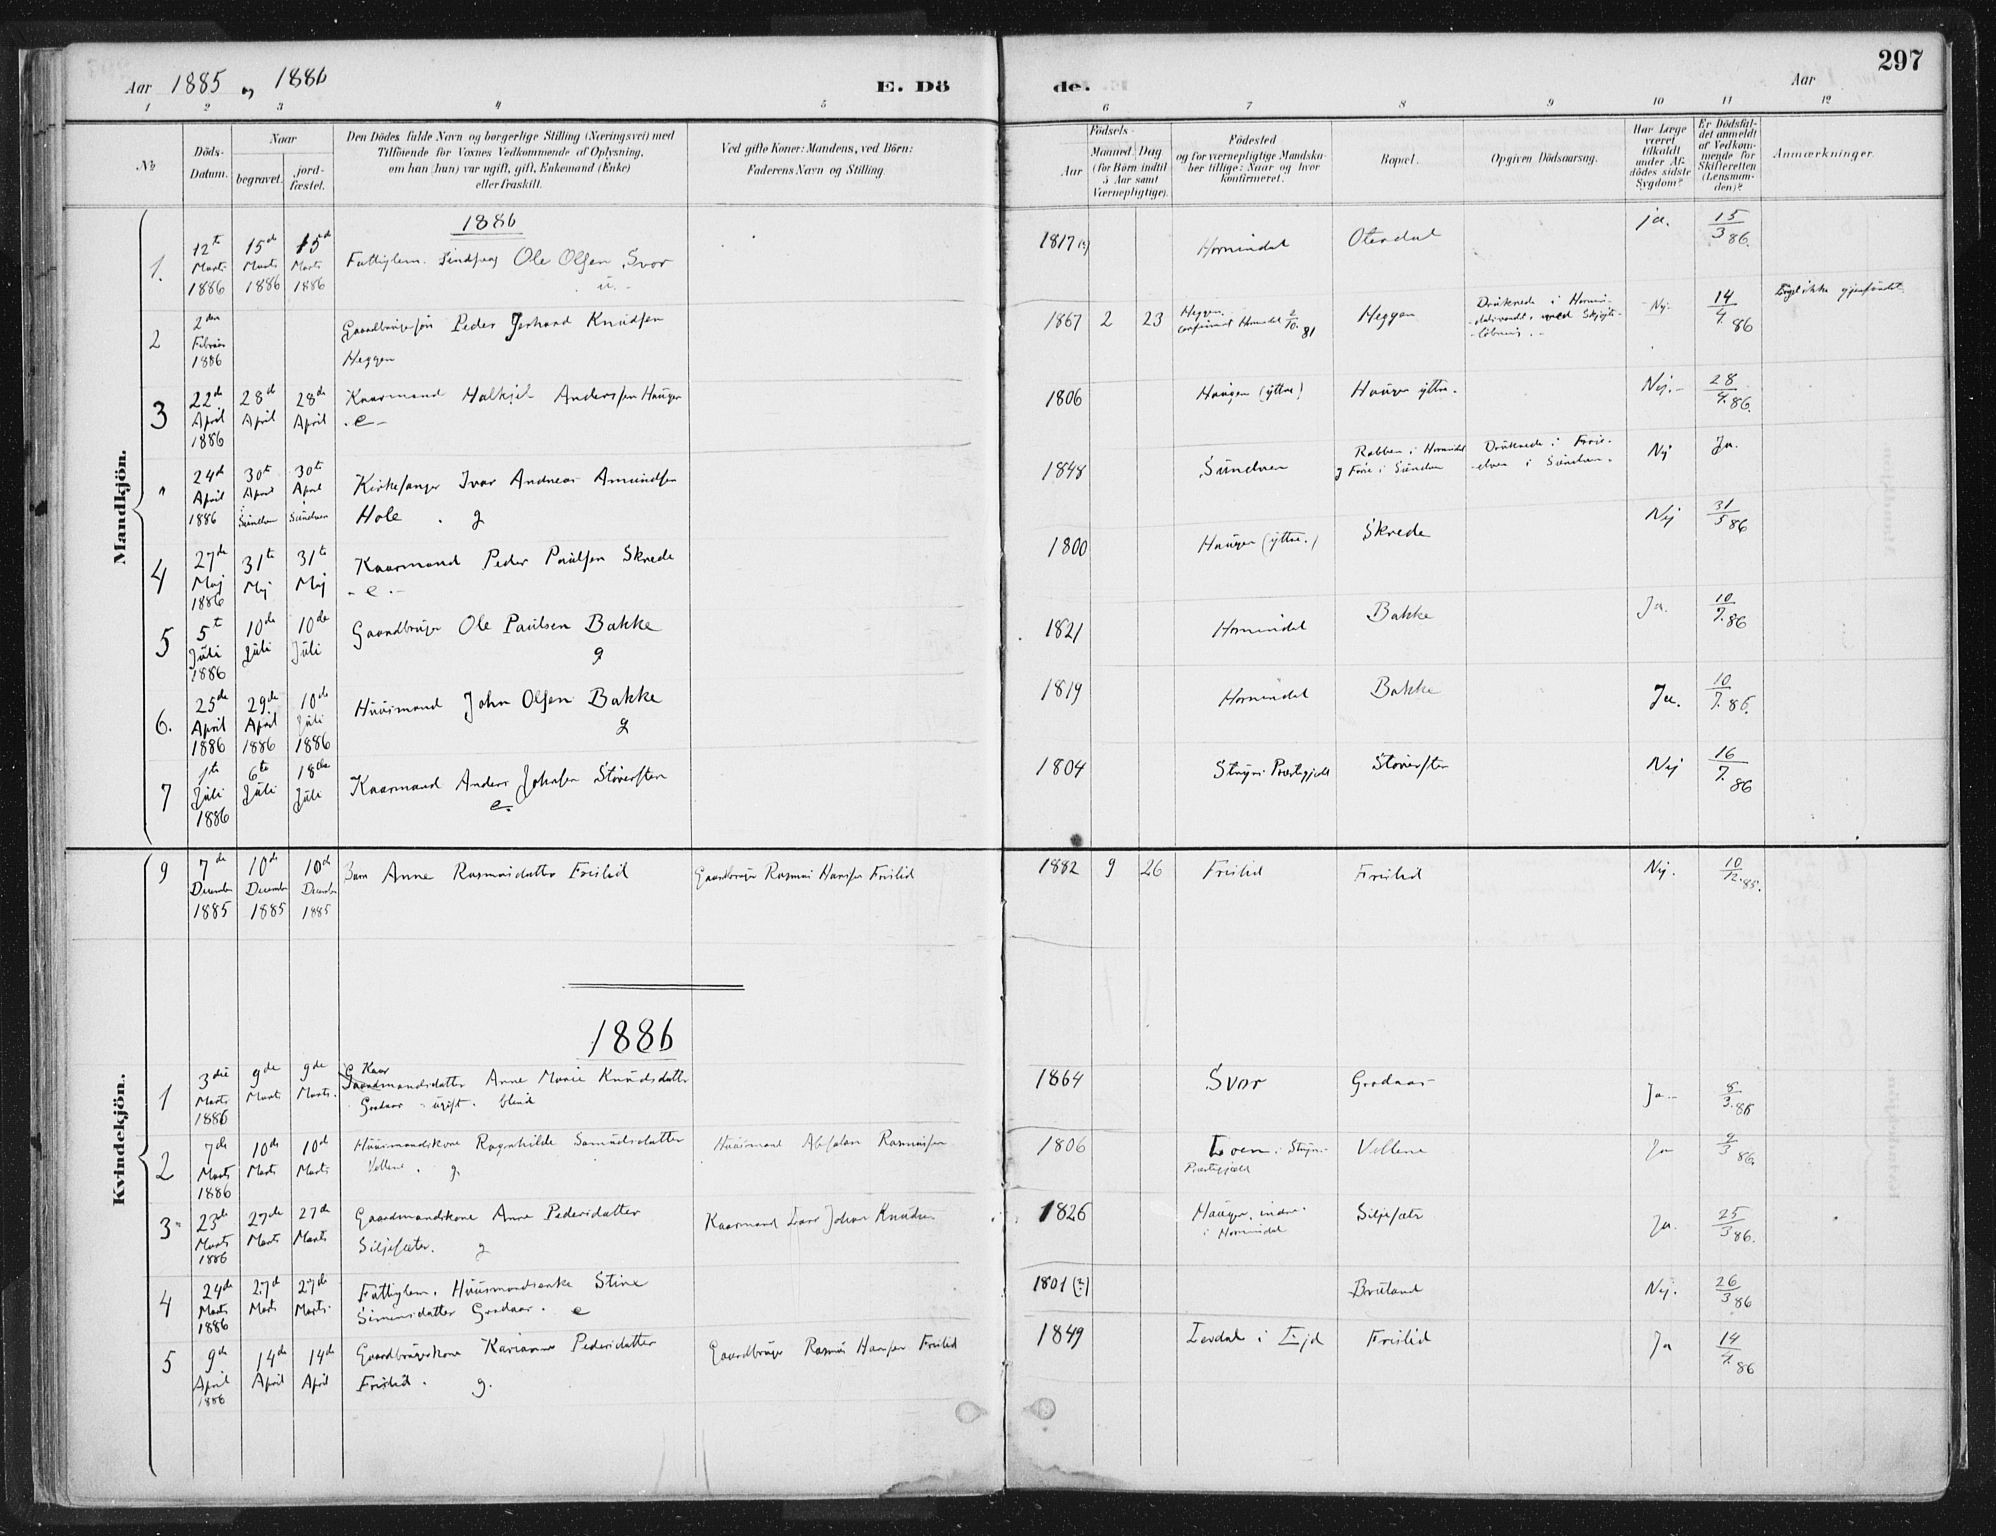 Aar 1885 og 1886
E. Dö
de.
Aar
297
1 2 3 4 5 6 7 8 9 10 11 12
No
Döds-Datum.
Naar
begravet.
jord-fæstet.
Den Dödes fulde Navn og borgerlige Stilling (Næringsvei) med
Tilföiende for Voxnes Vedkommende af Oplysning,
om han (hun) var ugift, gift, Enkemand (Enke)
eller fraskilt.
Ved gifte Koner: Mandens, ved Börn:
Faderens Navn og Stilling.
Födsels-
Aar
Maaned Dag
(for Börn indtil
5 Aar samt
Værnepligtige).
Födested
og for værnepligtige Mandska-
ber tillige: Naar og hvor
konfirmeret.
Bopæl.
Opgiven Dödsaarsag.
Har Læge
været
tilkaldt
under Af-
dödes sidste
Sygdom?
Er Dödsfal-
det anmeldt
af Vedkom-
mende for
Skifteretten
(Lensman-
den)?
Anmærkninger.
Mandkjön.
1886
1. 12te Marts 1886 15de Marts 1886 15de Marts 1886 Fattiglem. Ole Olsen Svor u. 1817(?) Hornindal Oterdal ja. 15/3 86.
2 2den Februar 1886 Gaardbrugersøn Peder Gerhard Knudsen
Heggen 1867 2 23 Heggen. confirmeret Hornindal 2/10 81 Heggen Druknede i Hornin-
dalsvandet, ved Skøjte-
løbning. Nej. 14/4. 86 Liget ikke gjenfundet
3 22de April 1886 28de April 28de April Kaarmand Halkjel Anderssen Haugen
e 1806 Haugen (yttre) Haugen yttre. Nej. 28/4. 86.
" 24de April 1886 30te April Sunduen 30te April Sunduen Kirkesanger Ivar Andreas Amundsen
Hole. g 1848 Sunduen Robben i Hornindal
Druknede i
elven i Nej Ja.
4 27de Maj 1886 31te Maj 31te Maj Kaarmand Peder Paulsen Skrede
e. 1800 Haugen (yttre.) Skrede Nej 31/5 86
5 5te Juli 1886 10de Juli 10de Juli Gaardbruger Ole Paulsen Bakke
g 1821 Hornindal Bakke Ja. 10/7. 86
6. 25de April 1886 29de April 1886 10de Juli 1886 Huusmand John Olsen Bakke
g 1819 Hornindal Bakke Ja. 10/7. 86.
7 1te Juli 1886 6te Juli 18de Juli Kaarmand Anders Johnsen
e. 1804 Stryns Præstegjeld Nej 16/7. 86
Kvindekjön.
9 7de December 1885 10de December 1885 10de December 1885 Barn Anne Rasmusdatter Frislid Gaardbruger Rasmus Hansen Frislid 1882 9 26 Frislid Frislid Nej. 10/12. 85.
1886
1 3die Marts 1886 9de Marts 9de Marts. Kaar
Gaardmandsdatter Anne Marie Knudsdatter
Grodaas ugift. blind 1864 Svor Grodaas Ja. 8/3. 86
2 7de Marts 1886 10de Marts 10de Marts Huusmandskone Ragnhilde Samuelsdatter
Vellene. g. Huusmand Absalon Rasmussen 1806 Loen i Stryns
Præstegjæld Vellene Ja 9/3 86.
3 23de Marts 1886 27de Marts 27de Marts Gaardmandskone Anne Pedersdatter
Siljesæter. g Kaarmand Lars Johan Knudsen 1826 Haugen, indre
i Hornindal Siljesæter Ja. 25/3 86.
4 24de Marts 1886 27de Marts 27de Marts. Fattiglem, Huusmandsenke Stine
Simensdatter Grodaas. e 1801(?) Bruland Nej. 26/3 86
5 9de April 1886 14de April 14de April Gaardbrugerkone Karianne Pedersdatter
Frislid. g. Gaardbruger Rasmus Hansen Frislid 1849 Levdal i Ejd Frislid Ja 14/4. 86